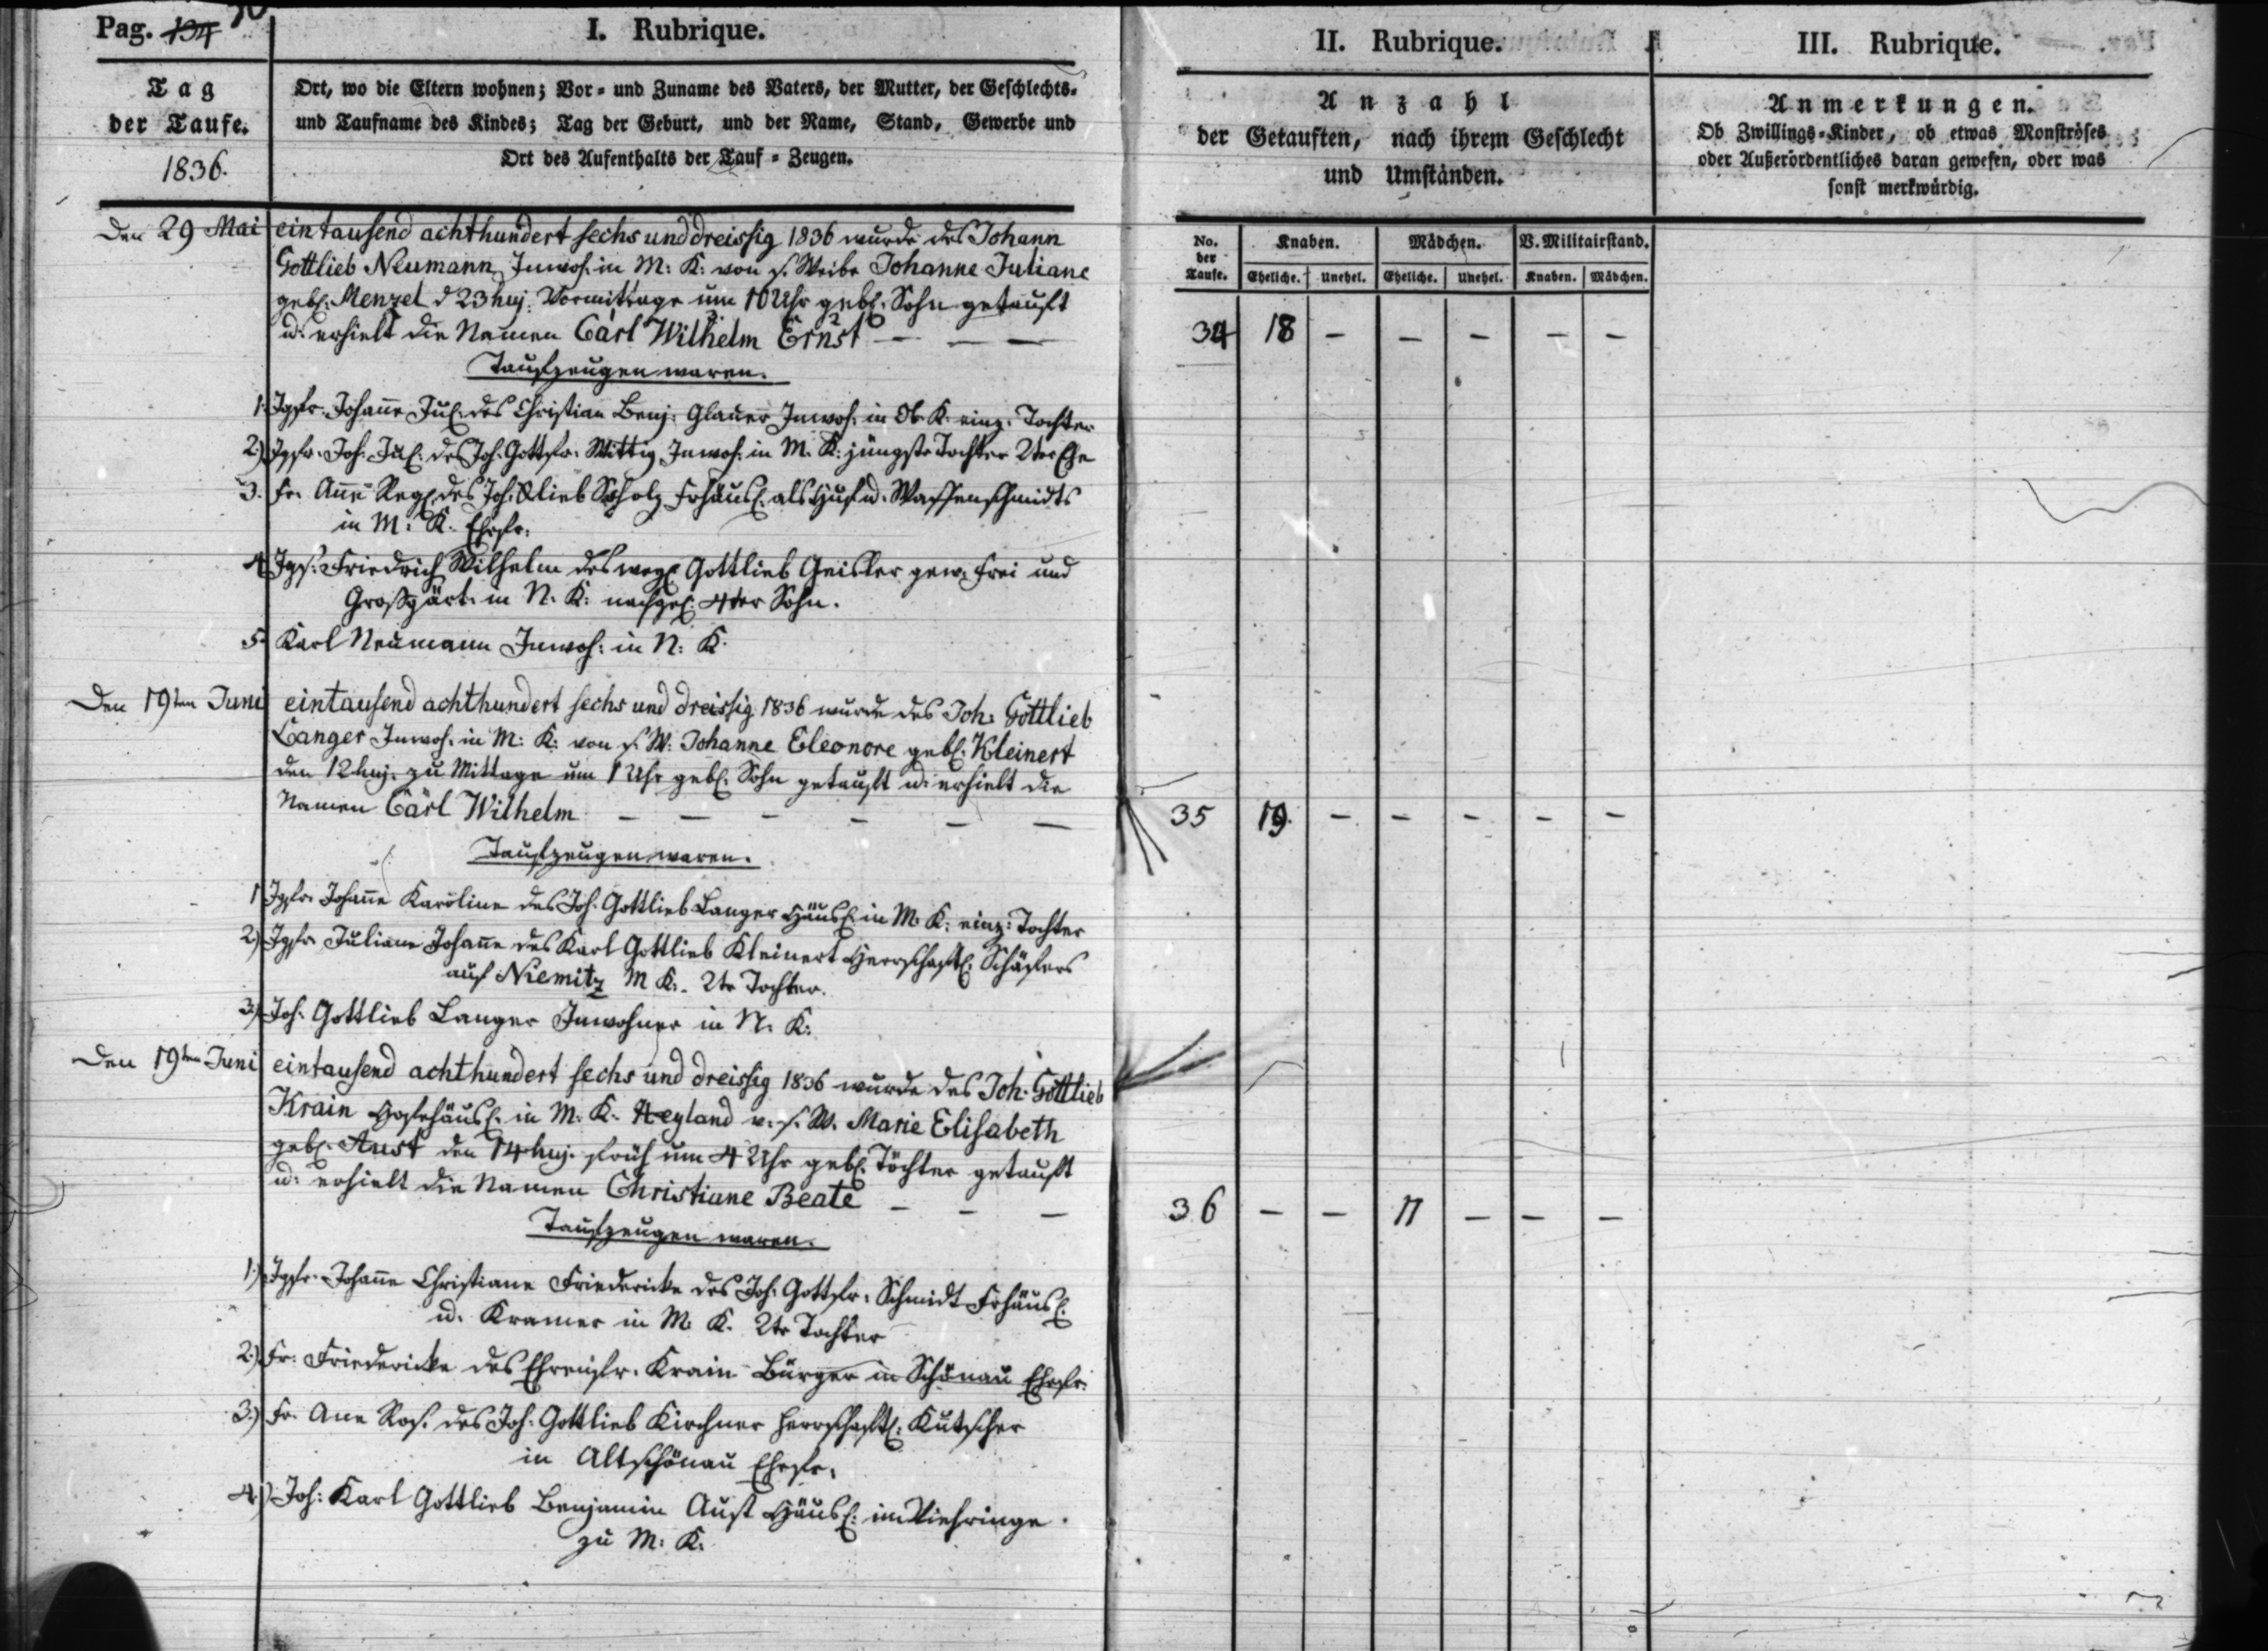 Pag. 134 70
I. Rubrique.
II. Rubrique.
III. Rubrique.
Tag
der Taufe.
1836.
Ort, wo die Eltern wohnen; Vor- und Zuname des Vaters, der Mutter, der Geschlechts-
und Taufname des Kindes; Tag der Geburt, und der Name, Stand, Gewerbe und
Ort des Aufenthalts der Tauf-Zeugen.
Anzahl
der Getauften, nach ihrem Geschlecht
und Umständen.
Anmerkungen.
Ob Zwillings-Kinder, ob etwas Monströses
oder Außerordentliches daran gewesen, oder was
sonst merkwürdig.
No. der Taufe.
Knaben. Mädchen. V. Militairstand.
Eheliche. Unehel. Eheliche. Unehel. Knaben. Mädchen.
Den 29 Mai eintausend achthundert sechs und dreissig 1836 wurde des Johann
Gottlieb Neumann Inwoh: in M: K: von s. Weibe Johanne Juliane
gebl. Menzel d 23 huj: Vormittage um 10 Uhr gebl. Sohn getauft
u. erhielt die Namen Carl Wilhelm Ernst — — —
34 18 — — — — —
Taufzeugen waren.
1. Jgfr. Johañe Jul. des Christian Benj: Glauer Inwoh: in Ob. K. einz: Tochter
2.) Jgfr. Joh: Jul. des Joh. Gottfr. Wittig Inwoh: in M. K: jüngste Tochter 2ter Ehe
3. Fr. Añe Regl. des Joh. Glieb Scholz Frhäusl. als Huf u. Waffenschmidts
in M: K. Ehefr:
4. Jgs. Friedrich Wilhelm des weyl. Gottlieb Geisler gew. Frei und
Großgärt. in N. K: nachgel. 4ter Sohn.
5. Karl Neumann Inwoh: in N: K.
Den 19ten Juni eintausend achthundert sechs und dreissig 1836 wurde des Joh: Gottlieb
Langer Inwoh. in M: K: von s. W: Johanne Eleonore gebl. Kleinert
den 12 huj. zu Mittage um 1 Uhr gebl. Sohn getauft u. erhielt die
Namen Carl Wilhelm — — — — — —
35 19. — — — — —
Taufzeugen waren.
1 Jgfr. Johañe Karoline des Joh. Gottlieb Langer Häusl. in M. K: einz: Tochter
2.) Jgfr. Juliane Johañe des Karl Gottlieb Kleinert Herrschaftl. Schäfers
auf Niemitz M K. 2te Tochter.
3.) Joh. Gottlieb Langer Inwohner in N. K:
Den 19ten Juni eintausend achthundert sechs und dreissig 1836 wurde des Joh. Gottlieb
Krain Hofehäusl. in M. K. Heyland v. s. W. Marie Elisabeth
gebl. Aust den 14 huj. früh um 4 Uhr gebl. Tochter getauft
u: erhielt die Namen Christiane Beate — — —
36 — — 17 — — —
Taufzeugen waren.
1.) Jgfr. Johañe Christiane Friedericke des Joh. Gottfr. Schmidt Frhäusl.
u. Kramer in M. K. 2te Tochter
2.) Fr: Friedericke des Ehrenfr. Krain Bürger in Schönau Ehefr.
3.) Fr. Ane Ros. des Joh. Gottlieb Kirchner Herrschaftl. Kutscher
in Altschönau Ehefr.
4.) Joh: Karl Gottlieb Benjamin Aust Häusl: im Viehringe
zu M: K.